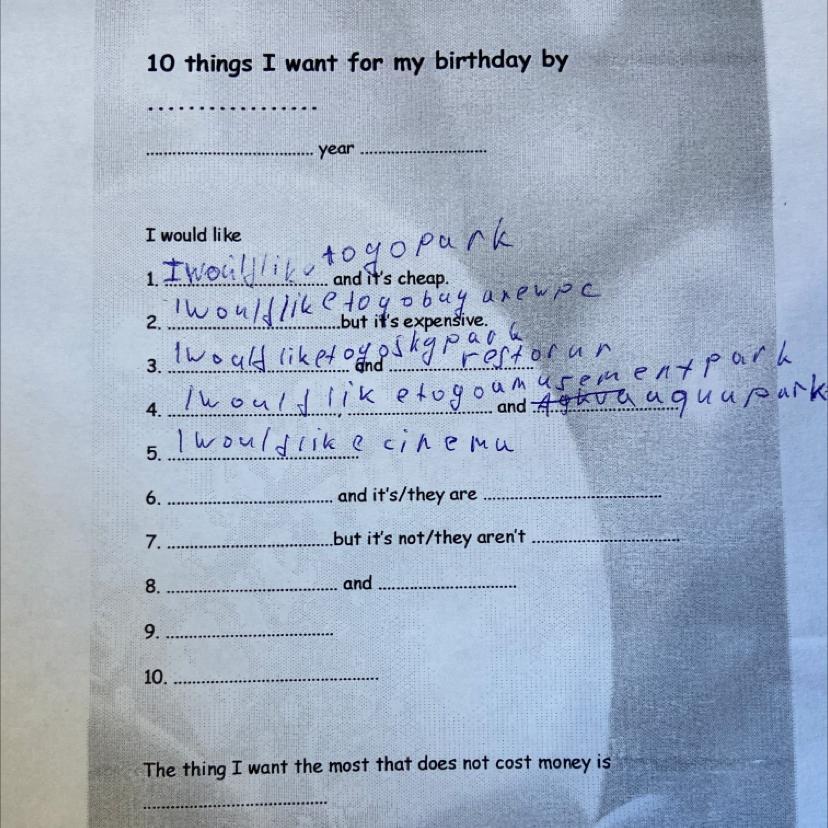 10 things I want for my birthday by
.................
.................................. year ..........................
I would like
1. I would like to go park and it's cheap.
2. I would like to go buy a new pc but it's expensive.
3. I would like to go sky park and restorun
4. I would like to go amusement park and Aqkva aquapark
5. I would like cinema
6. .................................. and it's/they are ....................................
7. ..................................but it's not/they aren't ..............................
8. .................................. and ............................
9. ..................................
10. ..........................................
The thing I want the most that does not cost money is
.....................................